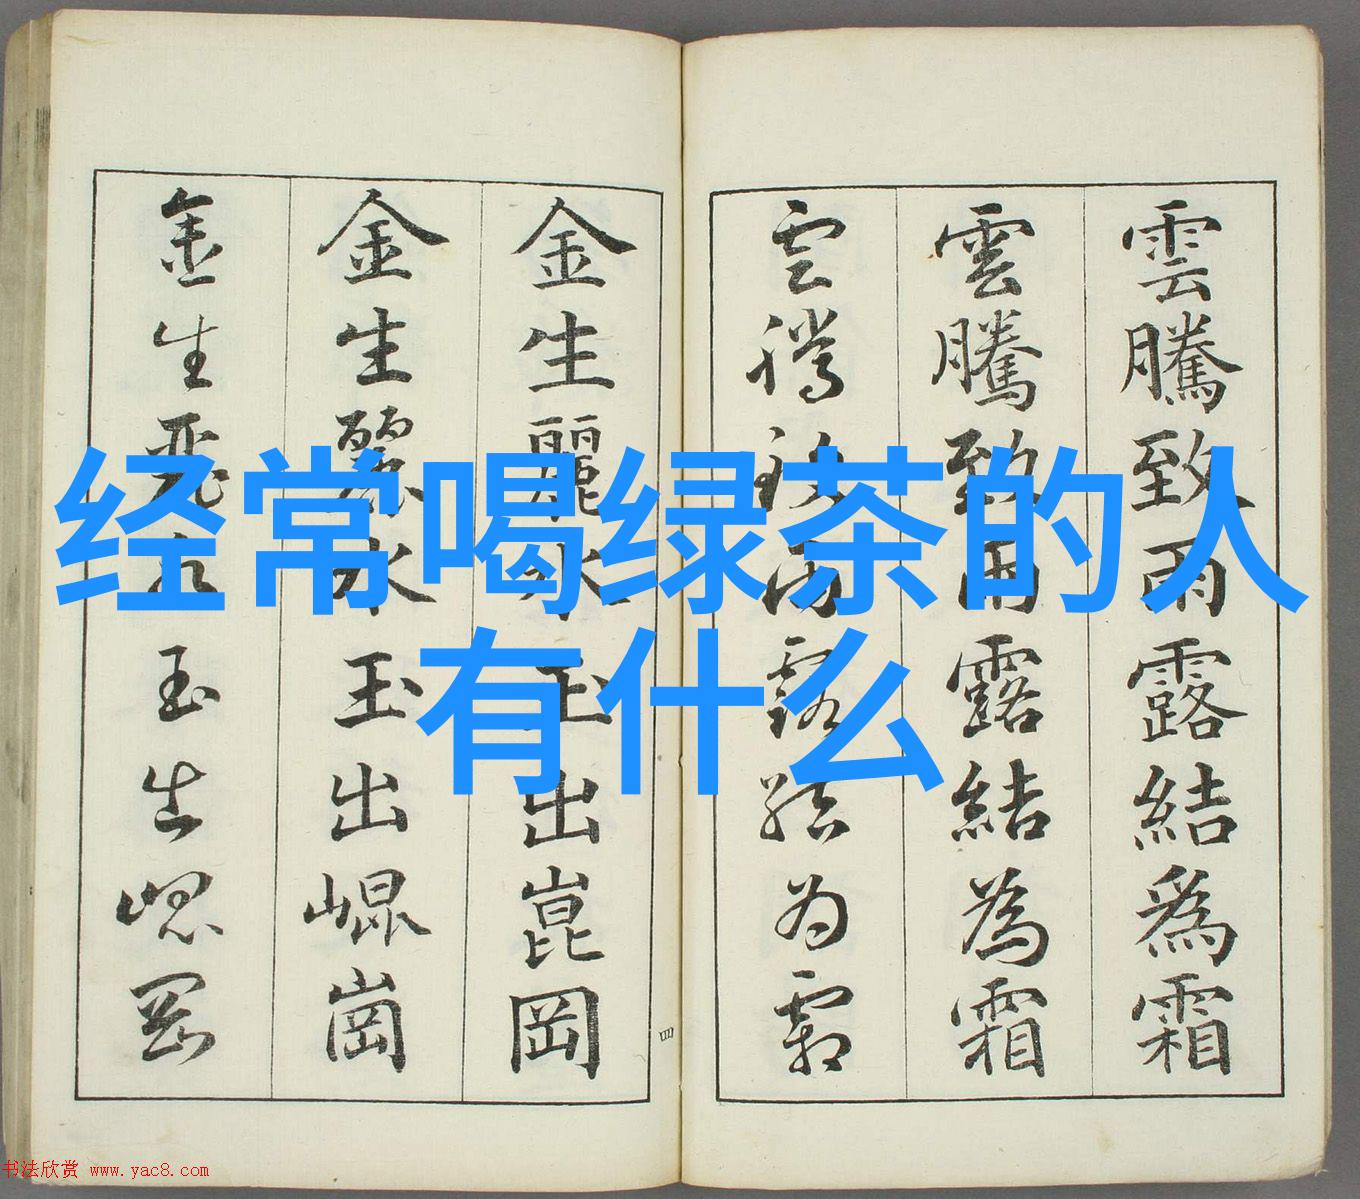 经常喝绿茶的人
有什么
雲騰致雨露結爲霜
雲騰致雨露結為霜
雲騰致雨露結为霜
金生麗水玉出崑岡
金生麗水玉出崐崗
金生麗水玉出崐岡
四
书法欣赏 www.yac8.com